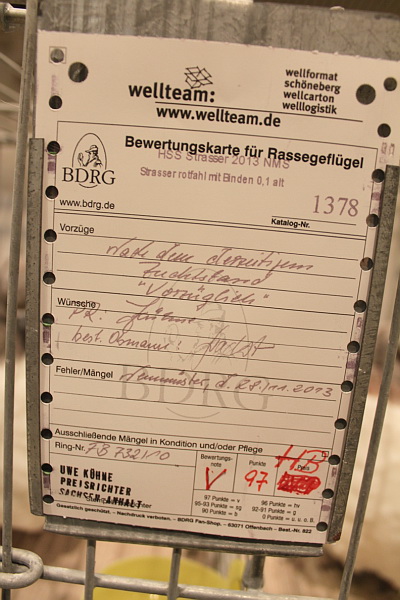 wellteam:
www.wellteam.de
wellformat
schöneberg
wellcarton
welllogistik
Bewertungskarte für Rassegeflügel
HSS Strasser 2013 NMS
Strasser rotfahl mit Binden 0,1 alt
BDRG
www.bdrg.de
1378
Katalog-Nr.
Vorzüge
Nach dem derzeitigem
Zuchtstand
"Vorzüglich"
Wünsche
PR:
best. Obmann:
BDRG
Fehler/Mängel
Neumünster, d. 28/11.2013
Ausschließende Mängel in Kondition und/oder Pflege
Ring-Nr. 7B 732/10
UWE KÜHNE
PREISRICHTER
SACHSEN-ANHALT
Bewertungs-
note
V
Punkte
97
HB
Preis
97 Punkte = v
95-93 Punkte = sg
90 Punkte = b
96 Punkte = hv
92-91 Punkte = g
0 Punkte = u, o. B.
Gesetzlich geschützt. – Nachdruck verboten. – BDRG Fan-Shop. – 63071 Offenbach – Best.-Nr. 822